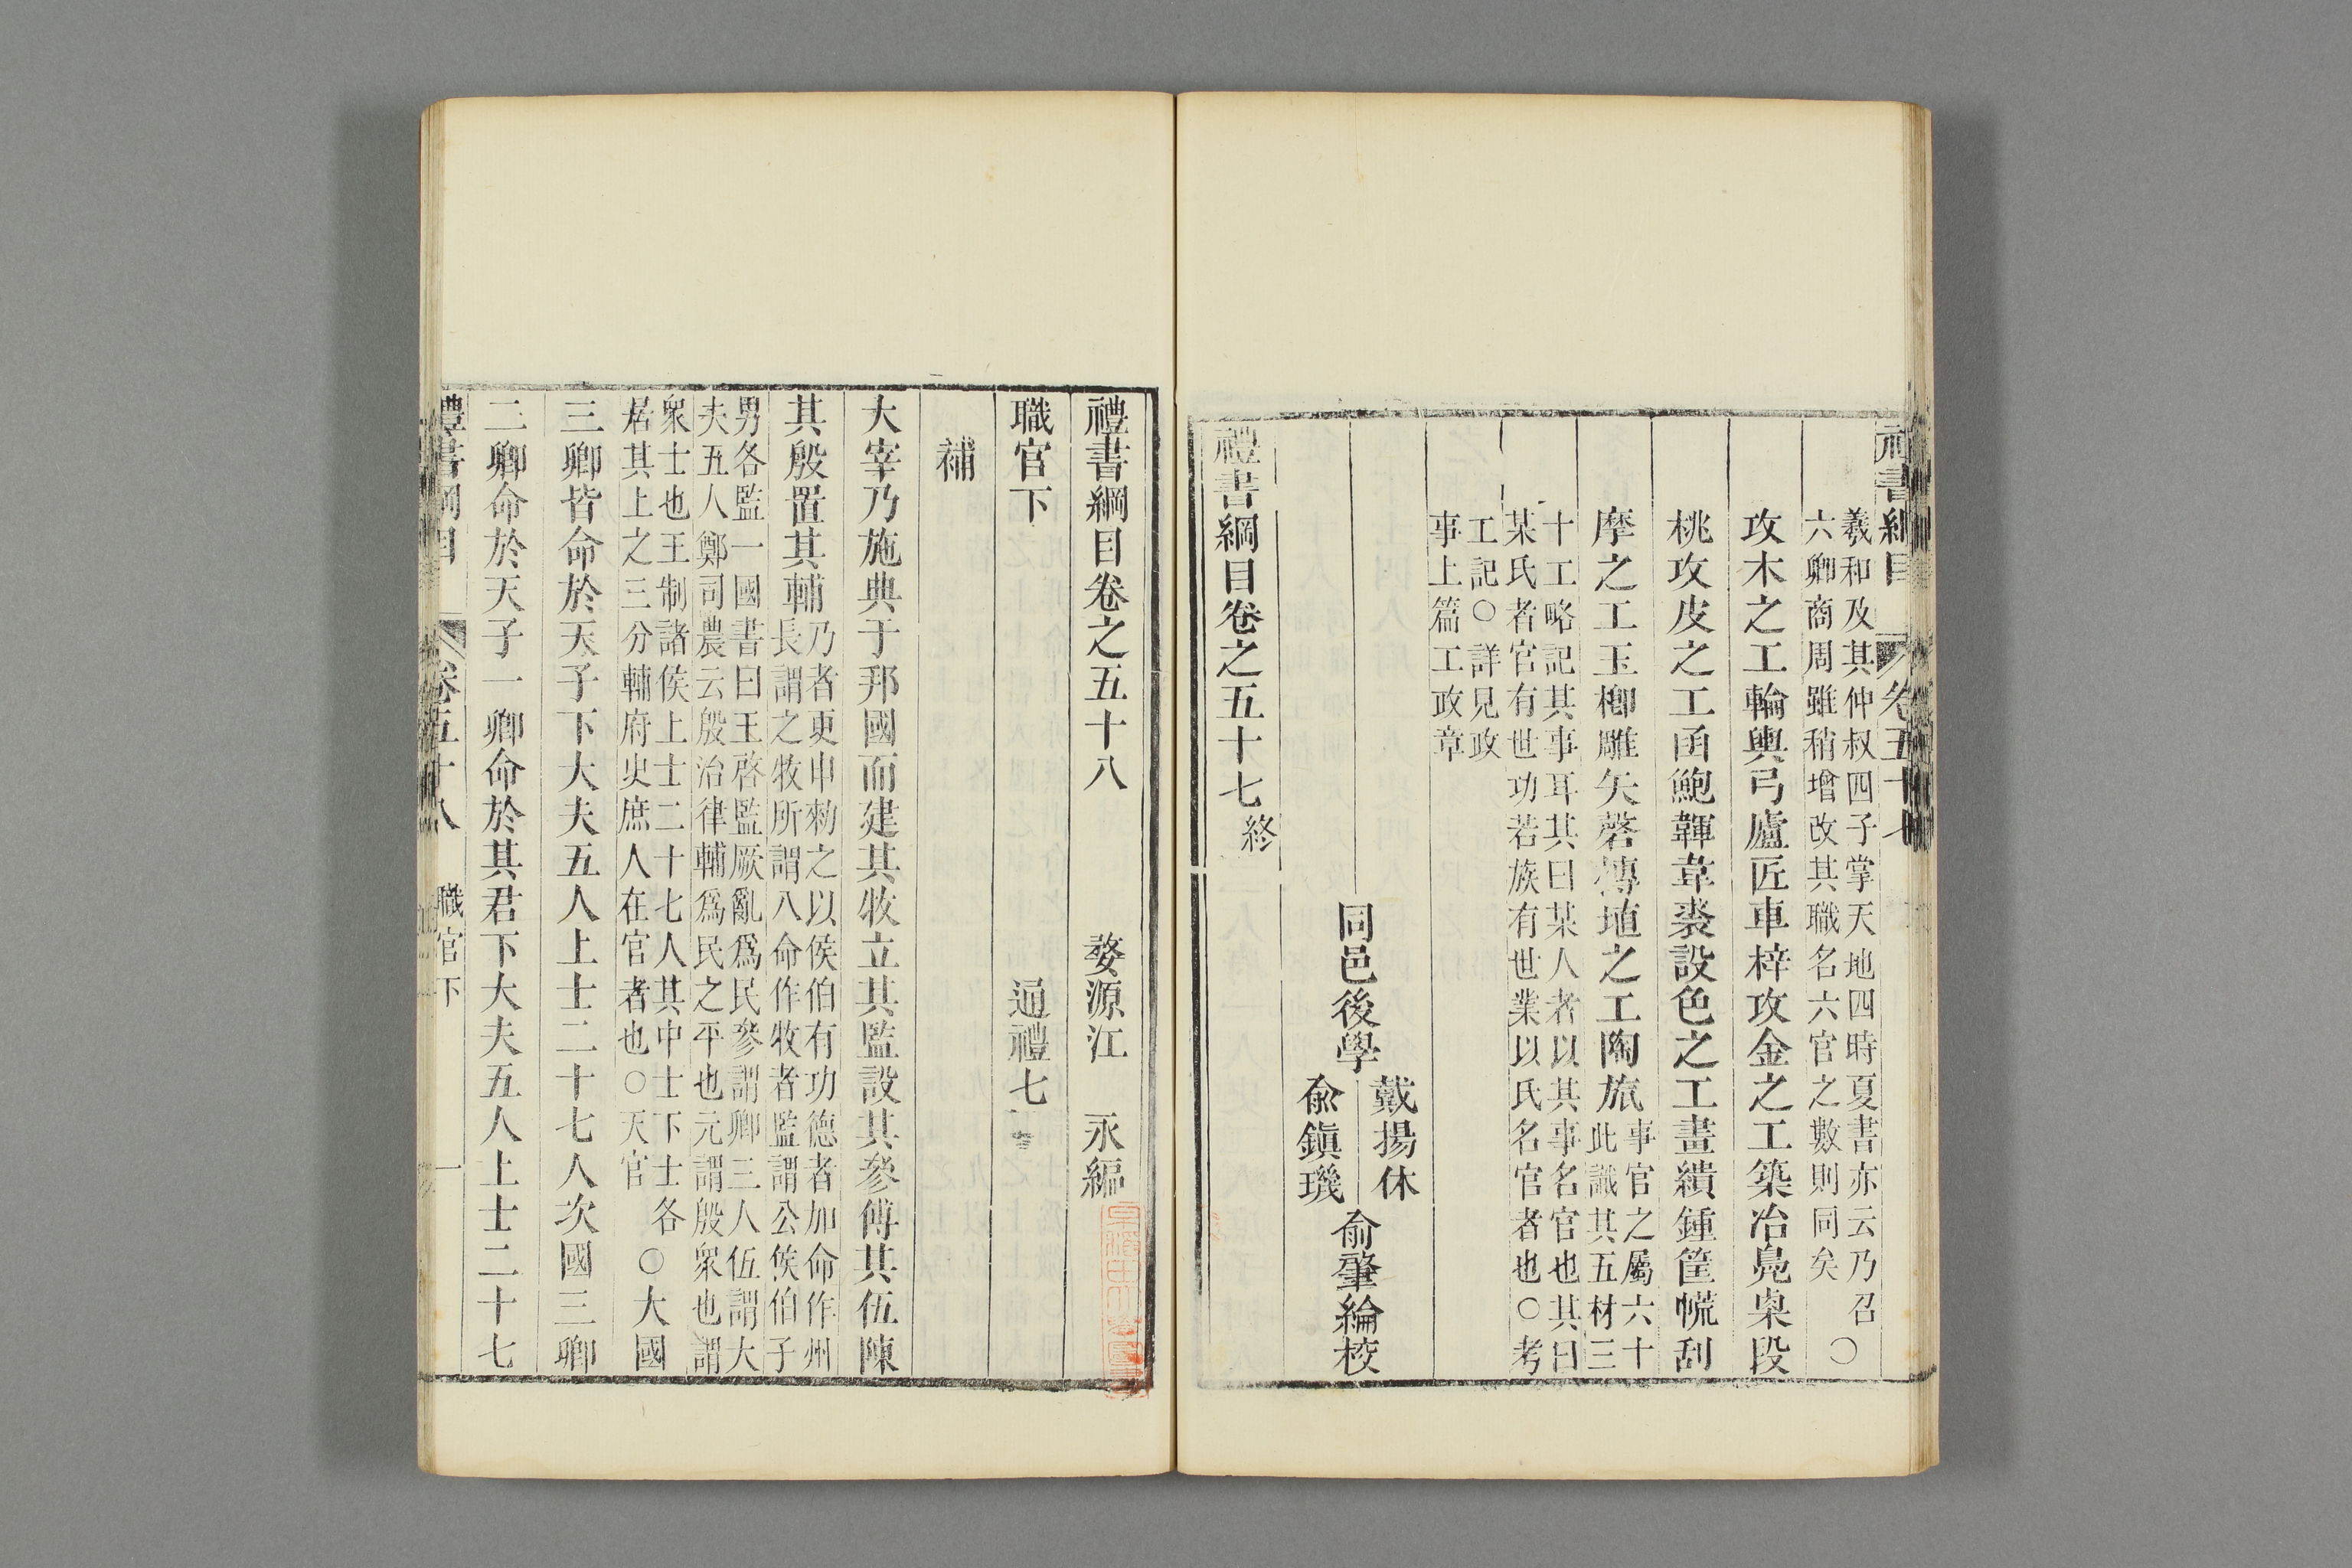 禮書綱目 卷五十七
羲和及其仲叔四子掌天地四時夏書亦云乃召
六卿商周雖稍增改其職名六官之數則同矣 〇
攻木之工輪輿弓廬匠車梓攻金之工築冶鳧㮚段
桃攻皮之工函鮑韗韋裘設色之工畫繢鍾筐㡛刮
摩之工玉楖雕矢磬摶埴之工陶旊
事官之屬六十
此識其五材三
十工略記其事耳其曰某人者以其事名官也其曰
某氏者官有世功若族有世業以氏名官者也〇考
工記〇詳見政
事上篇工政章
同邑後學
戴揚休
俞鎭璣
俞肇綸校
禮書綱目卷之五十七終
禮書綱目卷之五十八 婺源江 永編
職官下 通禮七
補
大宰乃施典于邦國而建其牧立其監設其參傅其伍陳
其殷置其輔
乃者更申勑之以侯伯有功德者加命作州
長謂之牧所謂八命作牧者監謂公侯伯子
男各監一國書曰王啓監厥亂爲民參謂卿三人伍謂大
夫五人鄭司農云殷治律輔爲民之平也元謂殷衆也謂
衆士也王制諸侯上士二十七人其中士下士各
居其上之三分輔府史庶人在官者也〇天官
〇大國
三卿皆命於天子下大夫五人上士二十七人次國三卿
二卿命於天子一卿命於其君下大夫五人上士二十七
禮書綱目 卷五十八 職官下 一